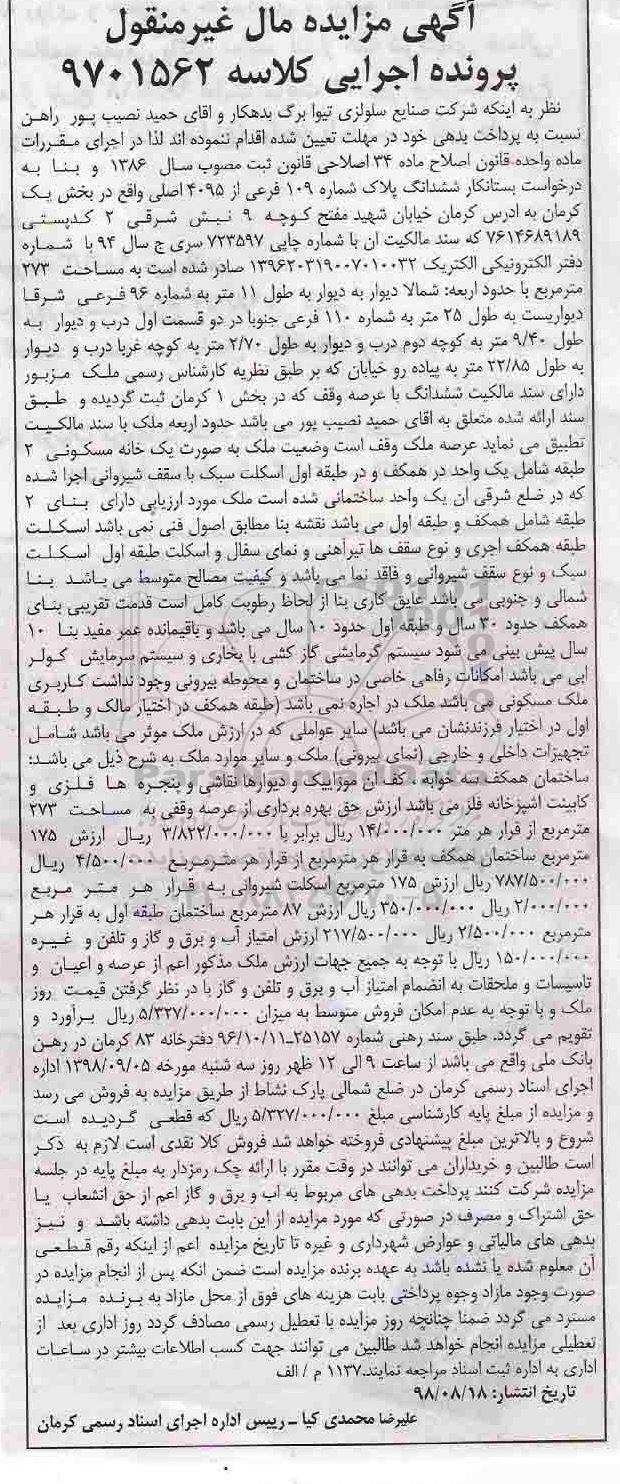 آگهی مزایده مال غیرمنقول
پرونده اجرایی کلاسه ۹۷۰۱۵۶۲
نظر به اینکه شرکت صنایع سلولزی تیوا برگ بدهکار و اقای حمید نصیب پور راهن
نسبت به پرداخت بدهی خود در مهلت تعیین شده اقدام ننموده اند لذا در اجرای مقررات
ماده واحده قانون اصلاح ماده ۳۴ اصلاحی قانون ثبت مصوب سال ۱۳۸۶ و بنا به
درخواست بستانکار ششدانگ پلاک شماره ۱۰۹ فرعی از ۴۰۹۵ اصلی واقع در بخش یک
کرمان به ادرس کرمان خیابان شهید مفتح کوچه ۹ نبش شرقی ۲ کدپستی
۷۶۱۴۶۸۹۱۸۹ که سند مالکیت ان با شماره چاپی ۷۲۳۵۹۷ سری ج سال ۹۴ با شماره
دفتر الکترونیکی الکتریک ۱۳۹۶۲۰۳۱۹۰۰۷۰۱۰۰۳۲ صادر شده است به مساحت ۲۷۳
مترمربع با حدود اربعه: شمالا دیوار به دیوار به طول ۱۱ متر به شماره ۹۶ فرعی شرقا
دیواریست به طول ۲۵ متر به شماره ۱۱۰ فرعی جنوبا در دو قسمت اول درب و دیوار به
طول ۹/۴۰ متر به کوچه دوم درب و دیوار به طول ۲/۷۰ متر به کوچه غربا درب و دیوار
به طول ۲۲/۸۵ متر به پیاده رو خیابان که بر طبق نظریه کارشناس رسمی ملک مزبور
دارای سند مالکیت ششدانگ با عرصه وقف که در بخش ۱ کرمان ثبت گردیده و طبق
سند ارائه شده متعلق به اقای حمید نصیب پور می باشد حدود اربعه ملک با سند مالکیت
تطبیق می نماید عرصه ملک وقف است وضعیت ملک به صورت یک خانه مسکونی ۲
طبقه شامل یک واحد در همکف و در طبقه اول اسکلت سبک با سقف شیروانی اجرا شده
که در ضلع شرقی ان یک واحد ساختمانی شده است ملک مورد ارزیابی دارای بنای ۲
طبقه شامل همکف و طبقه اول می باشد نقشه بنا مطابق اصول فنی نمی باشد اسکلت
طبقه همکف اجری و نوع سقف ها تیراهنی و نمای سفال و اسکلت طبقه اول اسکلت
سبک و نوع سقف شیروانی و فاقد نما می باشد و کیفیت مصالح متوسط می باشد بنا
شمالی و جنوبی می باشد عایق کاری بنا از لحاظ رطوبت کامل است قدمت تقریبی بنای
همکف حدود ۳۰ سال و طبقه اول حدود ۱۰ سال می باشد و باقیمانده عمر مفید بنا ۱۰
سال پیش بینی می شود سیستم گرمایشی گاز کشی با بخاری و سیستم سرمایش کولر
ابی می باشد امکانات رفاهی خاصی در ساختمان و محوطه بیرونی وجود نداشت کاربری
ملک مسکونی می باشد ملک در اجاره نمی باشد (طبقه همکف در اختیار مالک و طبقه
اول در اختیار فرزندنشان می باشد) سایر عواملی که در ارزش ملک موثر می باشد شامل
تجهیزات داخلی و خارجی (نمای بیرونی) ملک و سایر موارد ملک به شرح ذیل می باشد:
ساختمان همکف سه خوابه، کف ان موزاییک و دیوارها نقاشی و پنجره ها فلزی و
کابینت اشپزخانه فلز می باشد ارزش حق بهره برداری از عرصه وقفی به مساحت ۲۷۳
مترمربع از قرار هر متر ۱۴/۰۰۰/۰۰۰ ریال برابر با ۳/۸۲۲/۰۰۰/۰۰۰ ریال ارزش ۱۷۵
مترمربع ساختمان همکف به قرار هر مترمربع از قرار هر مترمربع ۴/۵۰۰/۰۰۰ ریال
۷۸۷/۵۰۰/۰۰۰ ریال ارزش ۱۷۵ مترمربع اسکلت شیروانی به قرار هر متر مربع
۲/۰۰۰/۰۰۰ ریال ۳۵۰/۰۰۰/۰۰۰ ریال ارزش ۸۷ مترمربع ساختمان طبقه اول به قرار هر
مترمربع ۲/۵۰۰/۰۰۰ ریال ۲۱۷/۵۰۰/۰۰۰ ارزش امتیاز آب و برق و گاز و تلفن و غیره
۱۵۰/۰۰۰/۰۰۰ ریال با توجه به جمیع جهات ارزش ملک مذکور اعم از عرصه و اعیان و
تاسیسات و ملحقات به انضمام امتیاز آب و برق و تلفن و گاز با در نظر گرفتن قیمت روز
ملک و با توجه به عدم امکان فروش متوسط به میزان ۵/۳۲۷/۰۰۰/۰۰۰ ریال برآورد و
تقویم می گردد. طبق سند رهنی شماره ۲۵۱۵۷-۹۶/۱۰/۱۱ دفترخانه ۸۳ کرمان در رهن
بانک ملی واقع می باشد از ساعت ۹ الی ۱۲ ظهر روز سه شنبه مورخه ۱۳۹۸/۰۹/۰۵ اداره
اجرای اسناد رسمی کرمان در ضلع شمالی پارک نشاط از طریق مزایده به فروش می رسد
و مزایده از مبلغ پایه کارشناسی مبلغ ۵/۳۲۷/۰۰۰/۰۰۰ ریال که قطعی گردیده است
شروع و بالاترین مبلغ پیشنهادی فروخته خواهد شد فروش کلا نقدی است لازم به ذکر
است طالبین و خریداران می توانند در وقت مقرر با ارائه چک رمزدار به مبلغ پایه در جلسه
مزایده شرکت کنند پرداخت بدهی های مربوط به اب و برق و گاز اعم از حق انشعاب یا
حق اشتراک و مصرف در صورتی که مورد مزایده از این بابت بدهی داشته باشد و نیز
بدهی های مالیاتی و عوارض شهرداری و غیره تا تاریخ مزایده اعم از اینکه رقم قطعی
آن معلوم شده یا نشده باشد به عهده برنده مزایده است ضمن انکه پس از انجام مزایده در
صورت وجود مازاد وجوه پرداختی بابت هزینه های فوق از محل مازاد به برنده مزایده
مسترد می گردد ضمنا چنانچه روز مزایده با تعطیل رسمی مصادف گردد روز اداری بعد از
تعطیلی مزایده انجام خواهد شد طالبین می توانند جهت کسب اطلاعات بیشتر در ساعات
اداری به اداره ثبت اسناد مراجعه نمایند.۱۱۳۷ م / الف
تاریخ انتشار: ۹۸/۰۸/۱۸
علیرضا محمدی کیا ـ رییس اداره اجرای اسناد رسمی کرمان